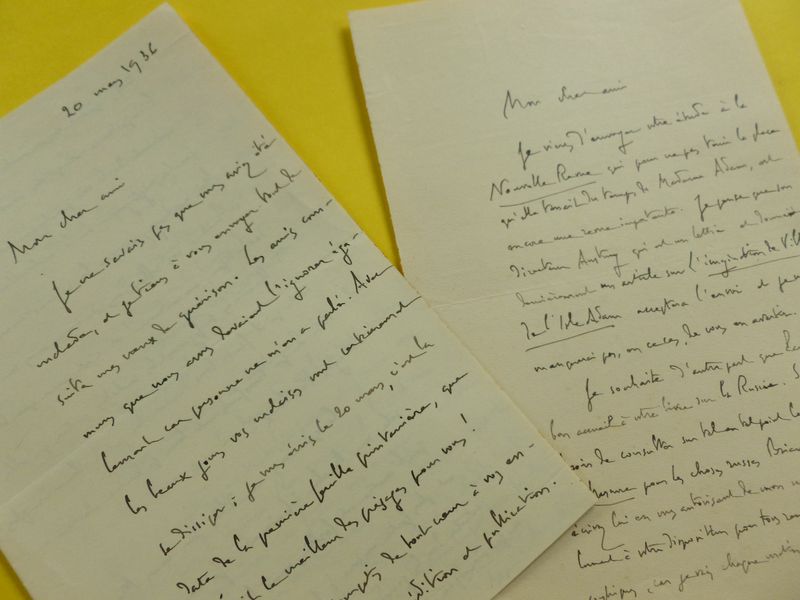 20 mars 1936
Mon cher ami
Je ne savais pas que vous aviez été
malade, et je tiens à vous envoyer tout de
suite mes vœux de guérison. Les amis com-
muns que nous avons devaient l'ignorer éga-
lement car personne ne m'en a parlé. Avec
les beaux jours vos malaises vont certainement
se dissiper ; je vous écris le 20 mars, c'est la
date de la première feuille printanière, que
soit le meilleur des présages pour vous !
de tout cœur à vos
édition et publication.
Mon cher ami
Je viens d'envoyer votre étude à la
Nouvelle Revue qui pour ne pas tenir la place
qu'elle tenait du temps de Madame Adam, est
encore une revue importante. Je pense que son
directeur Austruy qui est un lettré et donnait
dernièrement un article sur l'imagination de Vill
de l'Isle Adam acceptera l'envoi et je
manquerai pas, en ce cas, de vous en avertir.
Je souhaite d'autre part que
bon accueil à votre livre sur la Russie. S
de consulter sur tel ou tel point
Mercure pour les choses russes
écrivez lui en vous autorisant de mon
à votre disposition pour tous
car je vois chaque